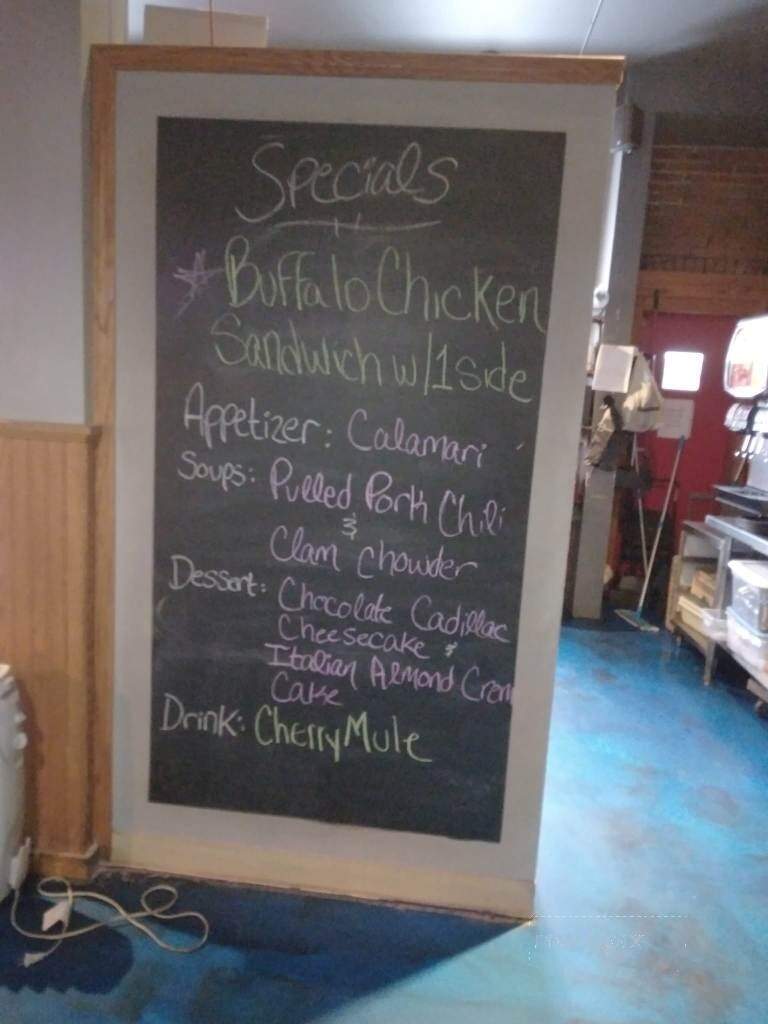 Specials
Buffalo Chicken
Sandwich w/1 side
Appetizer: Calamari
Soups: Pulled Pork Chili
&
Clam Chowder
Dessert: Chocolate Cadillac
Cheesecake &
Italian Almond Crem
Cake
Drink: Cherry Mule